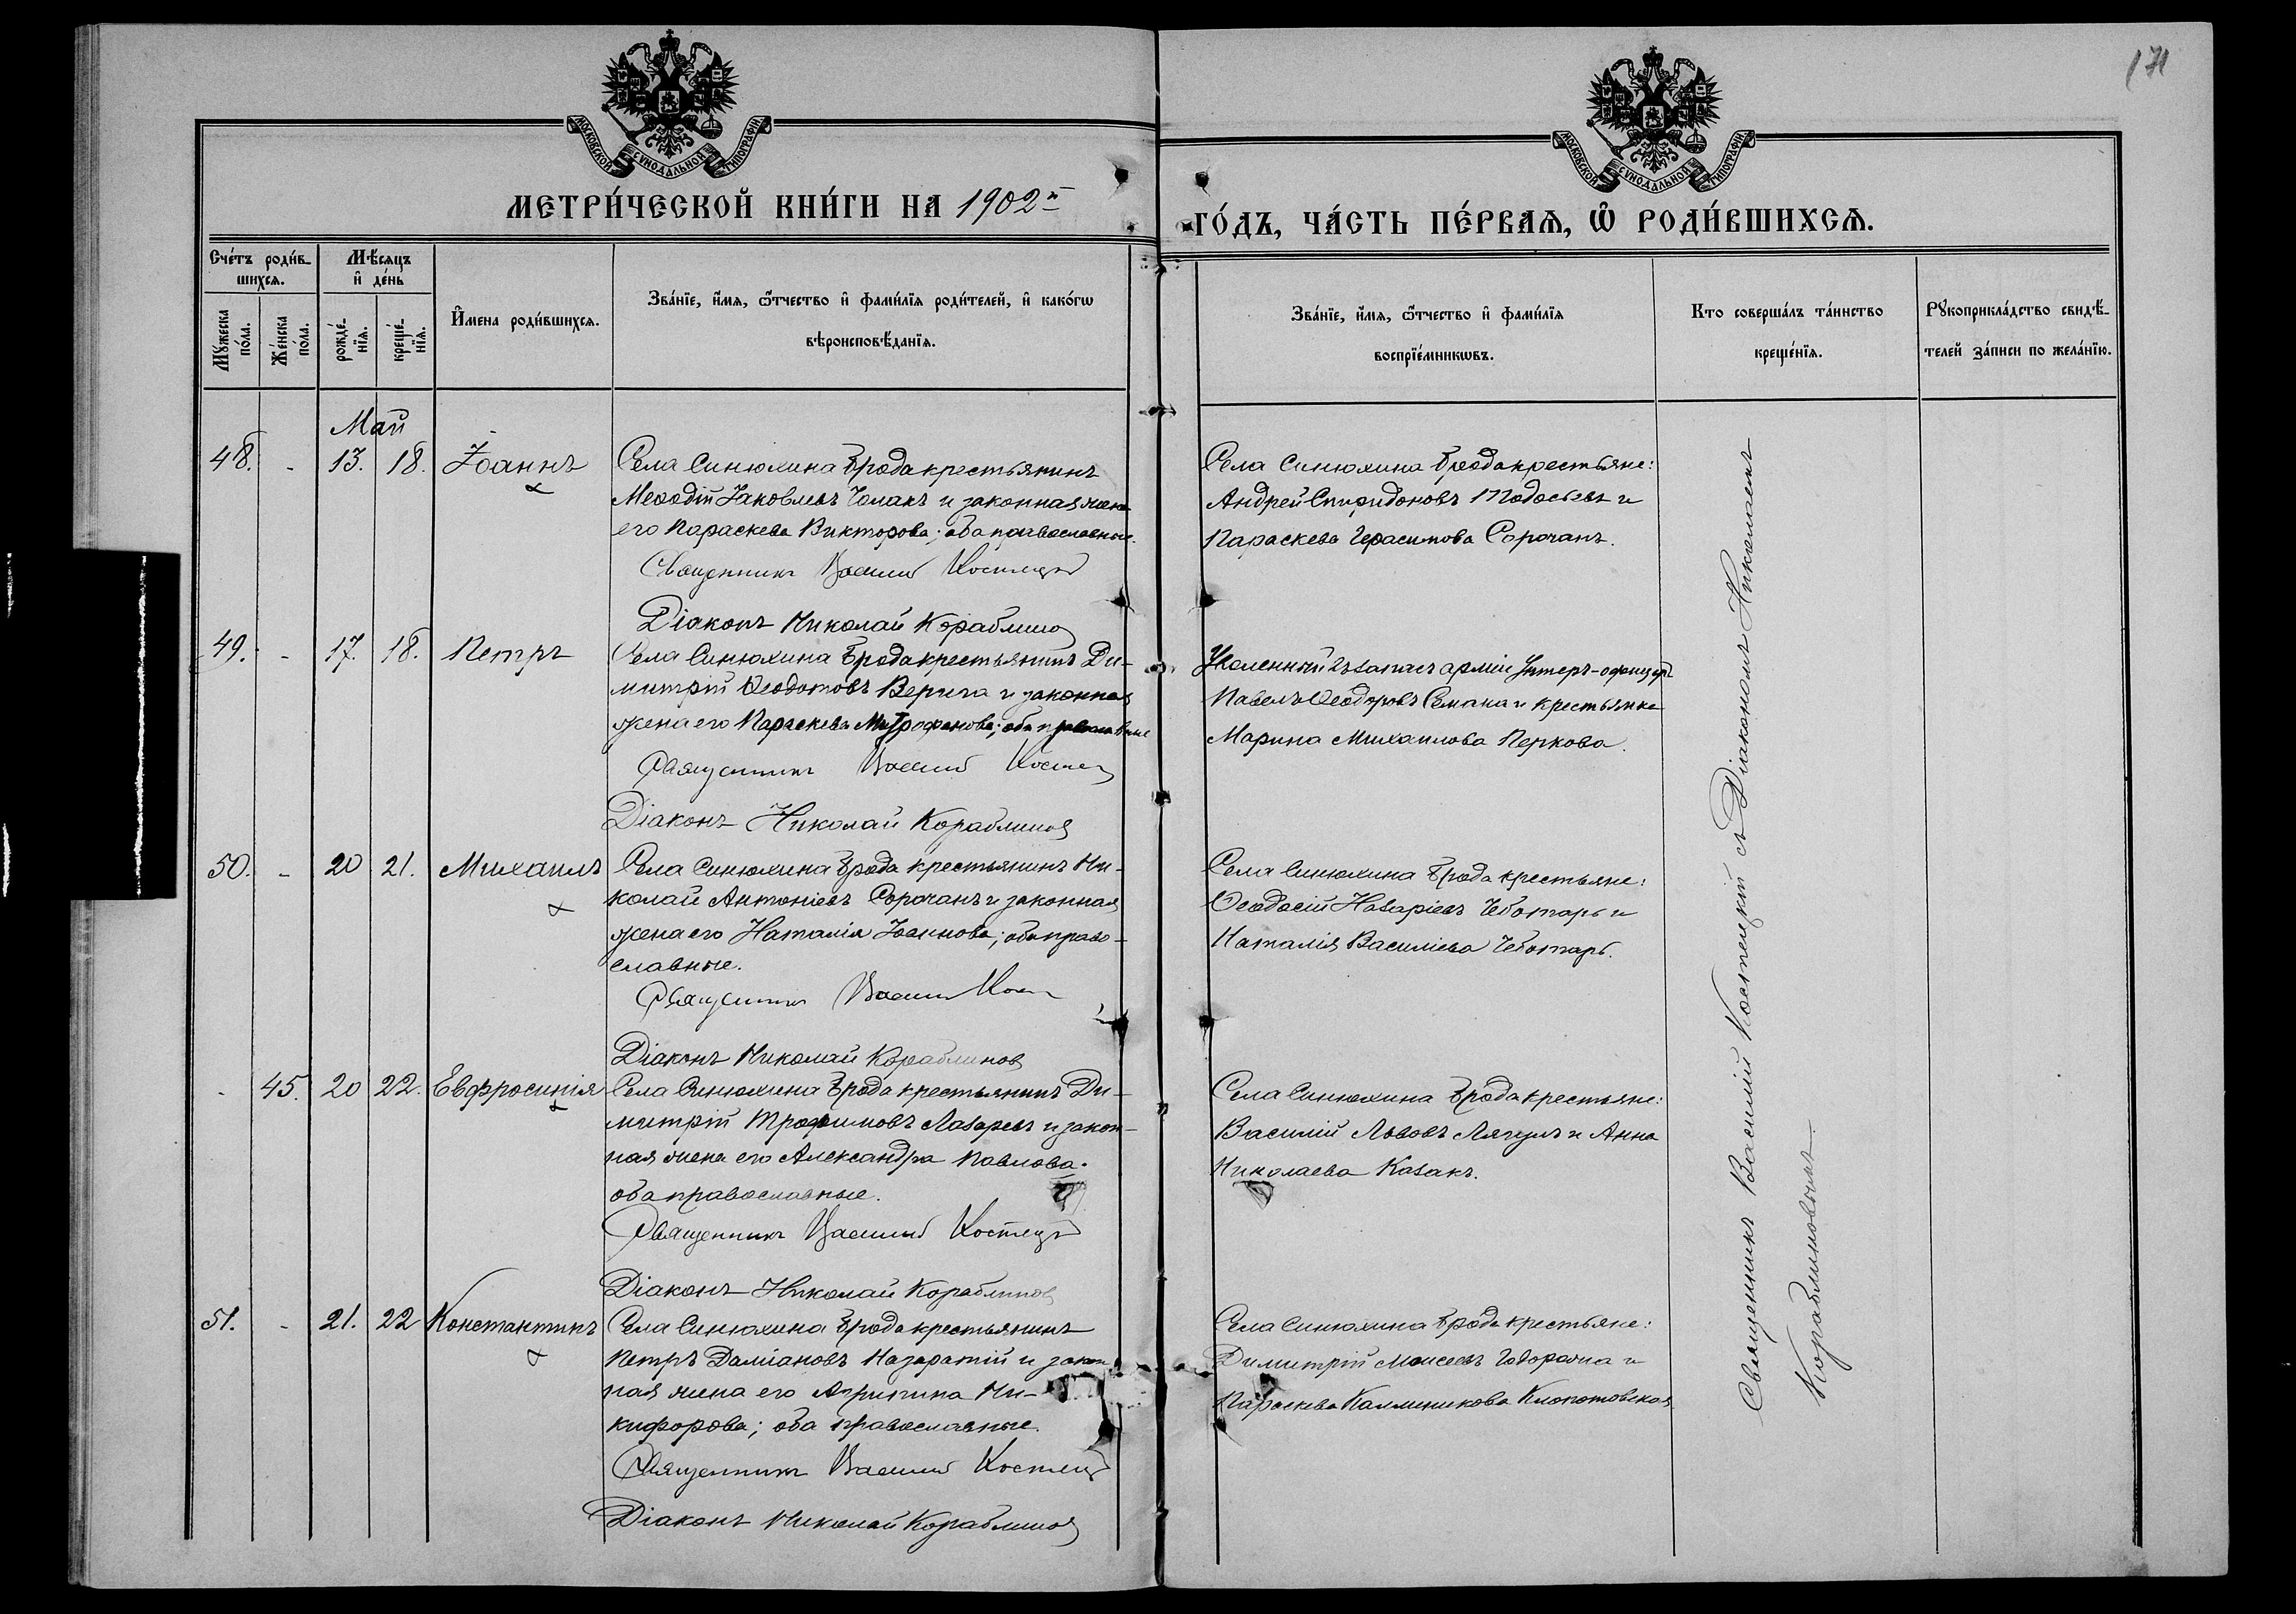 171
МОСКОВСКОЙ СѴНОДАЛЬНОЙ ТИПОГРАФІИ
МОСКОВСКОЙ СѴНОДАЛЬНОЙ ТИПОГРАФІИ
МЕТРИ́ЧЕСКОЙ КНИ́ГИ НА 1902й
ГО́ДЪ, ЧА́СТЬ ПЕ́РВАѦ, Ѽ РОДИ́ВШИХСѦ.
Сче́тъ роди́в-
шихся.
Мѣ́сяцъ
и҆ де́нь
Мꙋ́жеска
по́ла.
Же́нска
по́ла.
рожде́-
нїя.
креще́-
нїя.
И҆мена роди́вшихся.
Зва́нїе, и҆́мя, ѻ҆́тчество и҆ фами́лїя роди́телей, и҆ како́гѡ
вѣроисповѣ́данїя.
Зва́нїе, и҆́мя, ѻ҆́тчество и҆ фами́лїя
воспрїе́мникѡвъ.
Кто соверша́лъ та́инство
креще́нїя.
Рꙋкоприкла́дство свидѣ́-
телей за́писи по жела́нїю.
Май
48. - 13. 18. Іоаннъ
Села Синюхина Брода крестьянинъ
Меѳодій Іаковлевъ Чолакъ и законная жена
его Параскева Викторова; оба православные.
Священникъ Василій Костецкій
Діаконъ Николай Кораблинов
Села Синюхина Брода крестьяне:
Андрей Спиридоновъ Тодосьевъ и
Параскева Герасимова Сорочанъ.
49. - 17. 18. Петръ
Села Синюхина Брода крестьянинъ Ди-
митрій Ѳеодотовъ Верига и законная
жена его Параскева Митрофанова; оба православные
Священникъ Василій Костец
Діаконъ Николай Кораблинов
Уволенный въ запасъ арміи Унтеръ-офицеръ
Павелъ Ѳеодоровъ Семана и крестьянка
Марина Михаилова Перкова.
50. - 20 21. Михаилъ
Села Синюхина Брода крестьянинъ Ни-
колай Антоніевъ Сорочанъ и законная
жена его Наталія Іоаннова; оба право-
славные.
Священникъ Василій Кост
Діаконъ Николай Кораблинов
Села Синюхина Брода крестьяне:
Ѳеодосій Назаріевъ Чеботарь и
Наталія Василіева Чеботарь.
- 45. 20 22. Евфросинія
Села Синюхина Брода крестьянинъ Ди-
митрій Трофимовъ Лазаревъ и закон-
ная жена его Александра Павлова.
оба православные.
Священникъ Василій Костецкій
Діаконъ Николай Кораблинов
Села Синюхина Брода крестьяне:
Василій Львовъ Лягулъ и Анна
Николаева Казакъ.
51. - 21. 22 Константинъ
Села Синюхина Брода крестьянинъ
Петръ Даміановъ Назаратій и закон-
ная жена его Агрипина Ни-
кифорова; оба православные.
Священникъ Василій Костецкій
Діаконъ Николай Кораблинов
Села Синюхина Брода крестьяне:
Димитрій Моисеевъ и
Параскева Каллиникова Клопотовская
Священникъ Василій Костецкій съ Діакономъ Николаемъ
Кораблиновымъ